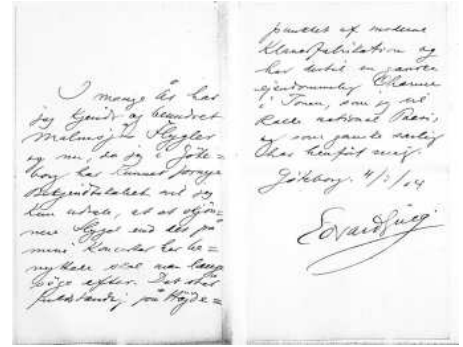 I mange År har
jeg kjendt og beundret
Malmsjös Flygler
og nu, da jeg i Göte=
borg har kunnet fornye
Bekjendtskabet med jeg
kun udtale, at et skjön=
nere Flygel end det på
mine Koncerter her be=
nyttede skal man længe
söge efter. Det står
fuldstændig på Höjde=
punktet af moderne
Klaverfabrikation og
har dertil en ganske
ejendommelig Charme
i Tonen, som jeg vil
kalde national
og som ganske særlig
har henfört mig.
Göteborg. 4/ /04
Edvard Grieg